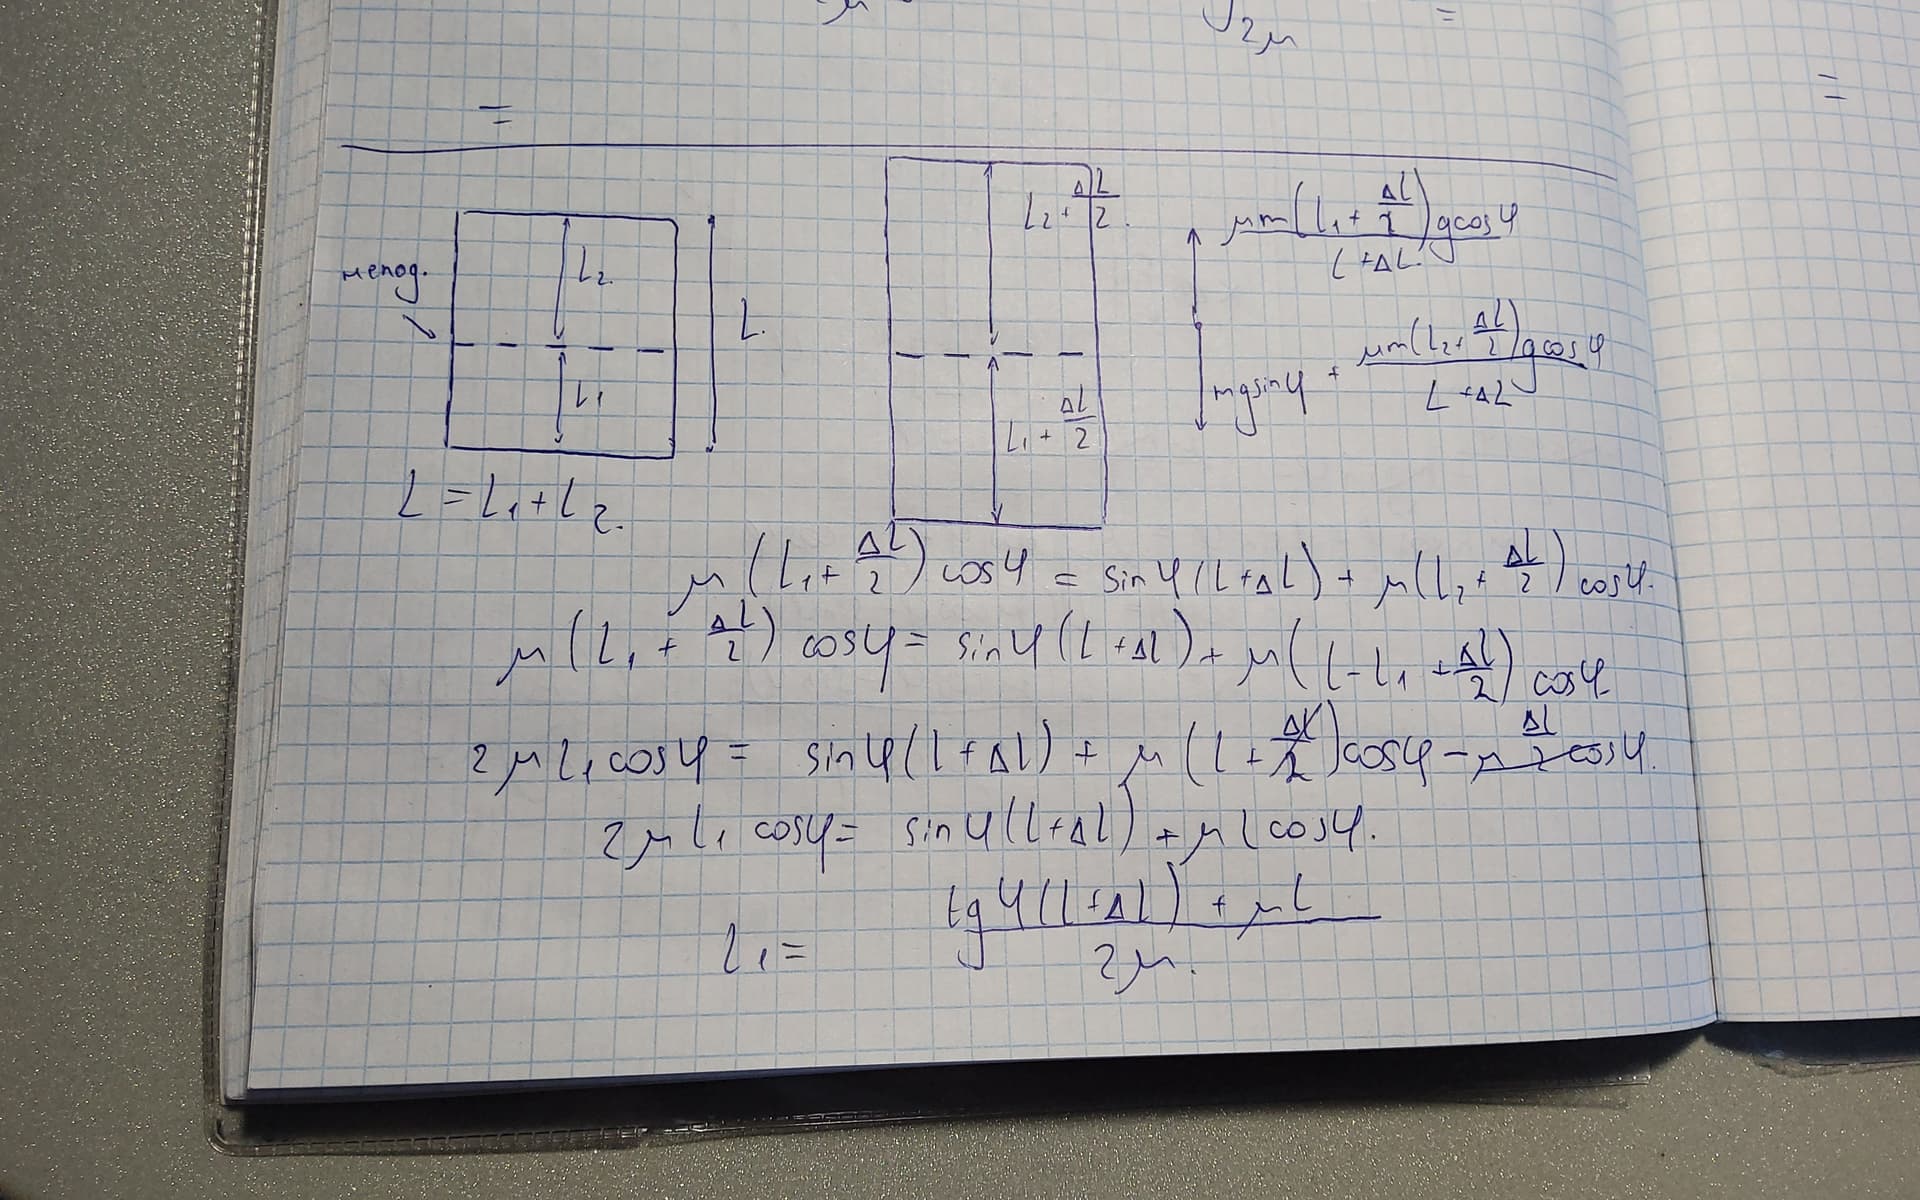 2μ
=
=
=
непод.
L₂
L
L₁
L = L₁ + L₂.
L₂ + ΔL/2.
L₁ + ΔL/2
μm(L₁ + ΔL/2)gcosφ / L + ΔL.
mgsinφ + μm(L₂ + ΔL/2)gcosφ / L + ΔL
μ(L₁ + ΔL/2)cosφ = sinφ(L + ΔL) + μ(L₂ + ΔL/2)cosφ.
μ(L₁ + ΔL/2)cosφ = sinφ(L + ΔL) + μ(L - L₁ + ΔL/2)cosφ.
2μL₁cosφ = sinφ(L + ΔL) + μ(L + ΔL/2)cosφ - μ ΔL/2 cosφ.
2μL₁cosφ = sinφ(L + ΔL) + μLcosφ.
L₁ = tgφ(L + ΔL) + μL / 2μ.